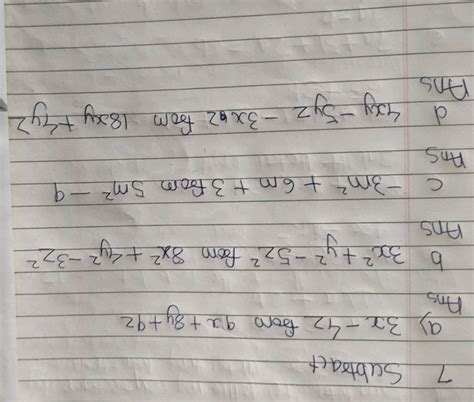 7 Subtract
a) 3x - 4z from 9x + 8y + 9z
Ans
b 3x² + y² - 5z² from 8x² + 4y² - 3z²
Ans
c -3m² + 6m + 3 from 5m² - 9
Ans
d 4xy - 5yz - 3xz from 18xy + 4yz
Ans